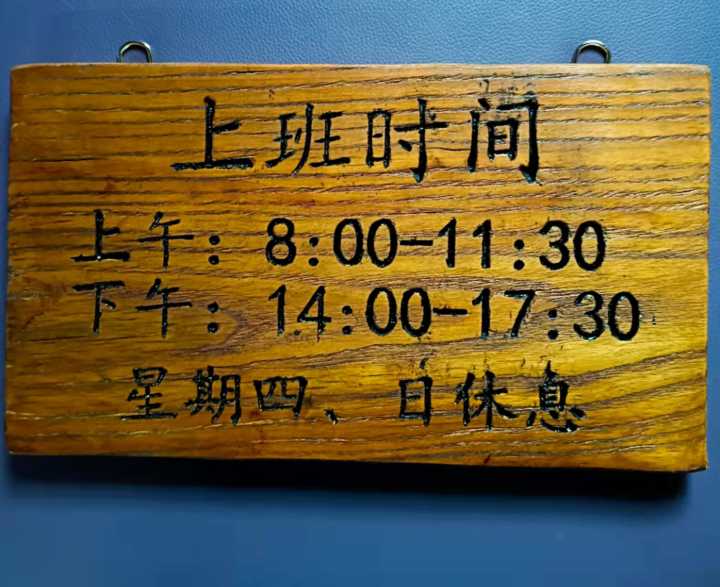 上班时间
上午：8:00-11:30
下午：14:00-17:30
星期四、日休息